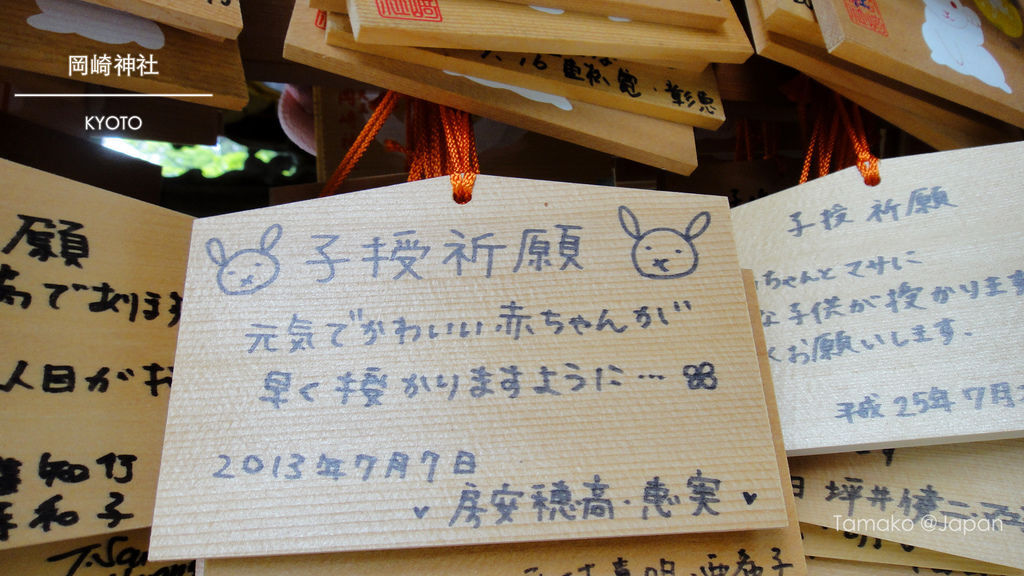 岡崎神社
KYOTO
子授祈願
元気でかわいい赤ちゃんが
早く授かりますように…
2013年7月7日
房安穂高・恵実
願
であります
人目がお
知行
和子
子授祈願
ちゃんとマサに
な子供が授かります
くお願いします.
平成25年7月
坪井健二
Tamako @Japan